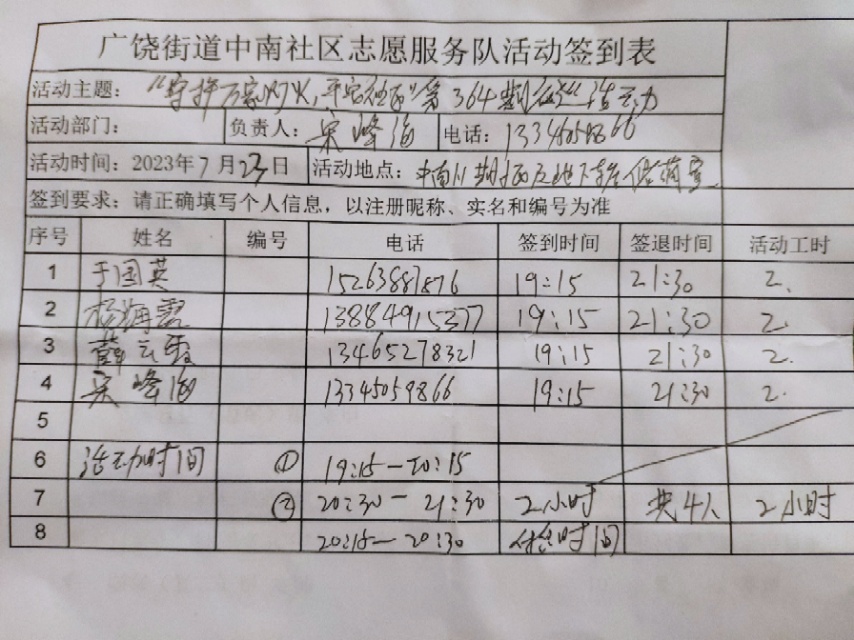 广饶街道中南社区志愿服务队活动签到表
活动主题：“守护万家灯火，平安社区”第364期 活动
活动部门： 负责人：宋峰海 电话：13345059866
活动时间：2023年7月23日 活动地点：中南 期 区地下车库储藏室
签到要求：请正确填写个人信息，以注册昵称、实名和编号为准
序号 姓名 编号 电话 签到时间 签退时间 活动工时
1 于国英 15263887876 19:15 21:30 2.
2 杨海霞 13884915377 19:15 21:30 2.
3 薛云霞 13465278321 19:15 21:30 2.
4 宋峰海 13345059866 19:15 21:30 2.
5
6 活动时间 ① 19:15—20:15
7 ② 20:30— 21:30 2小时 共4人 2小时
8 20:15—20:30 休息时间